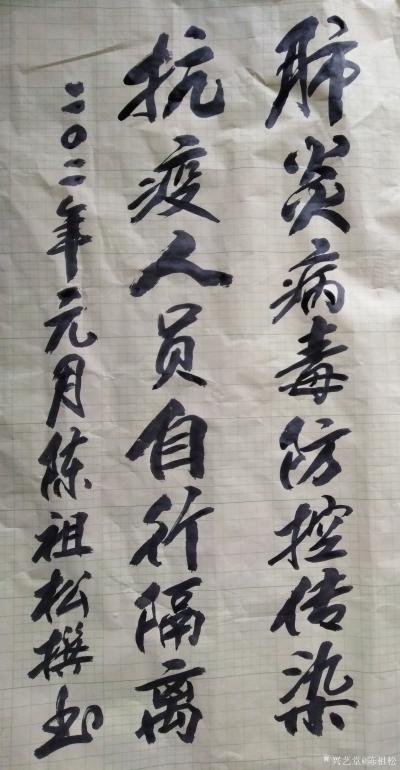 肺炎病毒防控传染
抗疫人员自行隔离
二〇二二年元月陈祖松撰书
兴艺堂@陈祖松